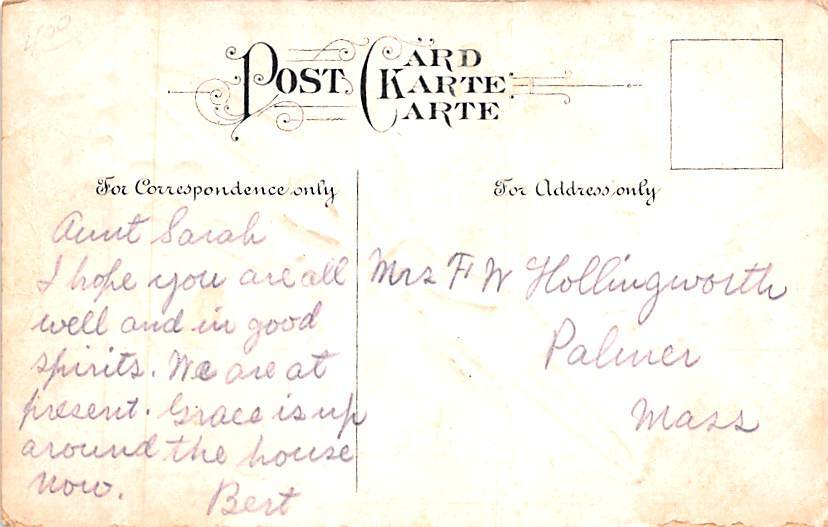 400
POST CARD
KARTE
CARTE
For Correspondence only
For Address only
Aunt Sarah
I hope you are all
well and in good
spirits. We are at
present. Grace is up
around the house
now.
Bert
Mrs F W Hollingworth
Palmer
Mass